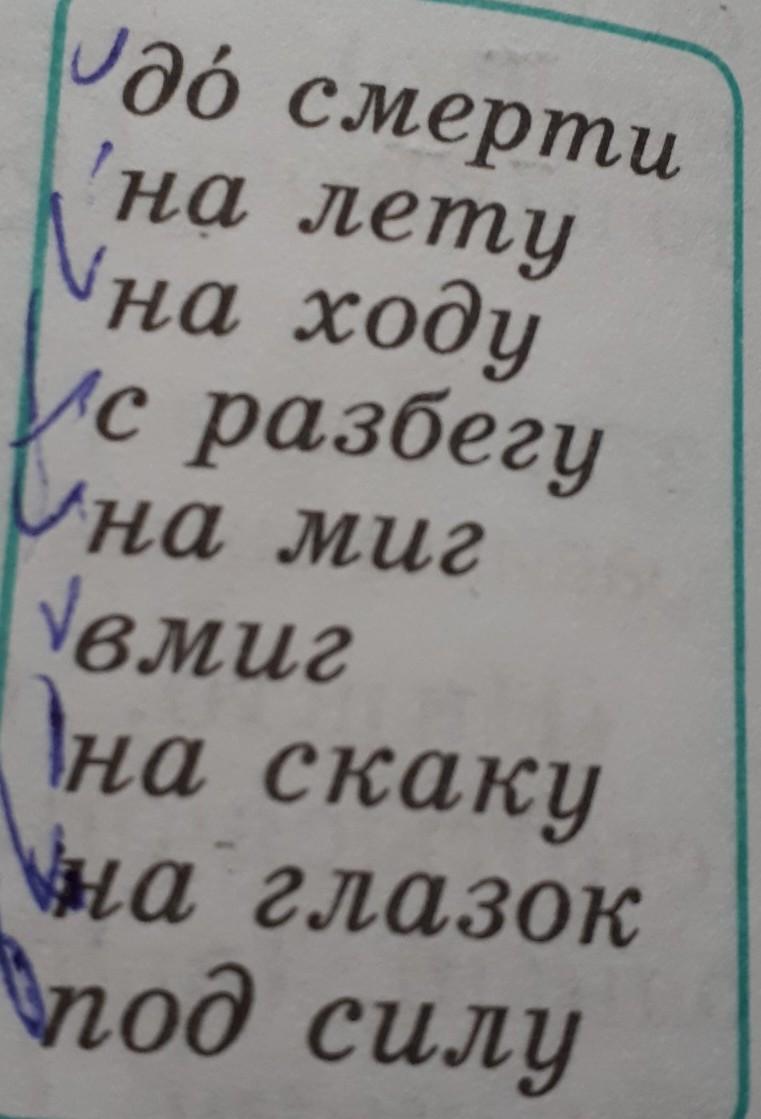 до́ смерти
на лету
на ходу
с разбегу
на миг
вмиг
на скаку
на глазок
под силу